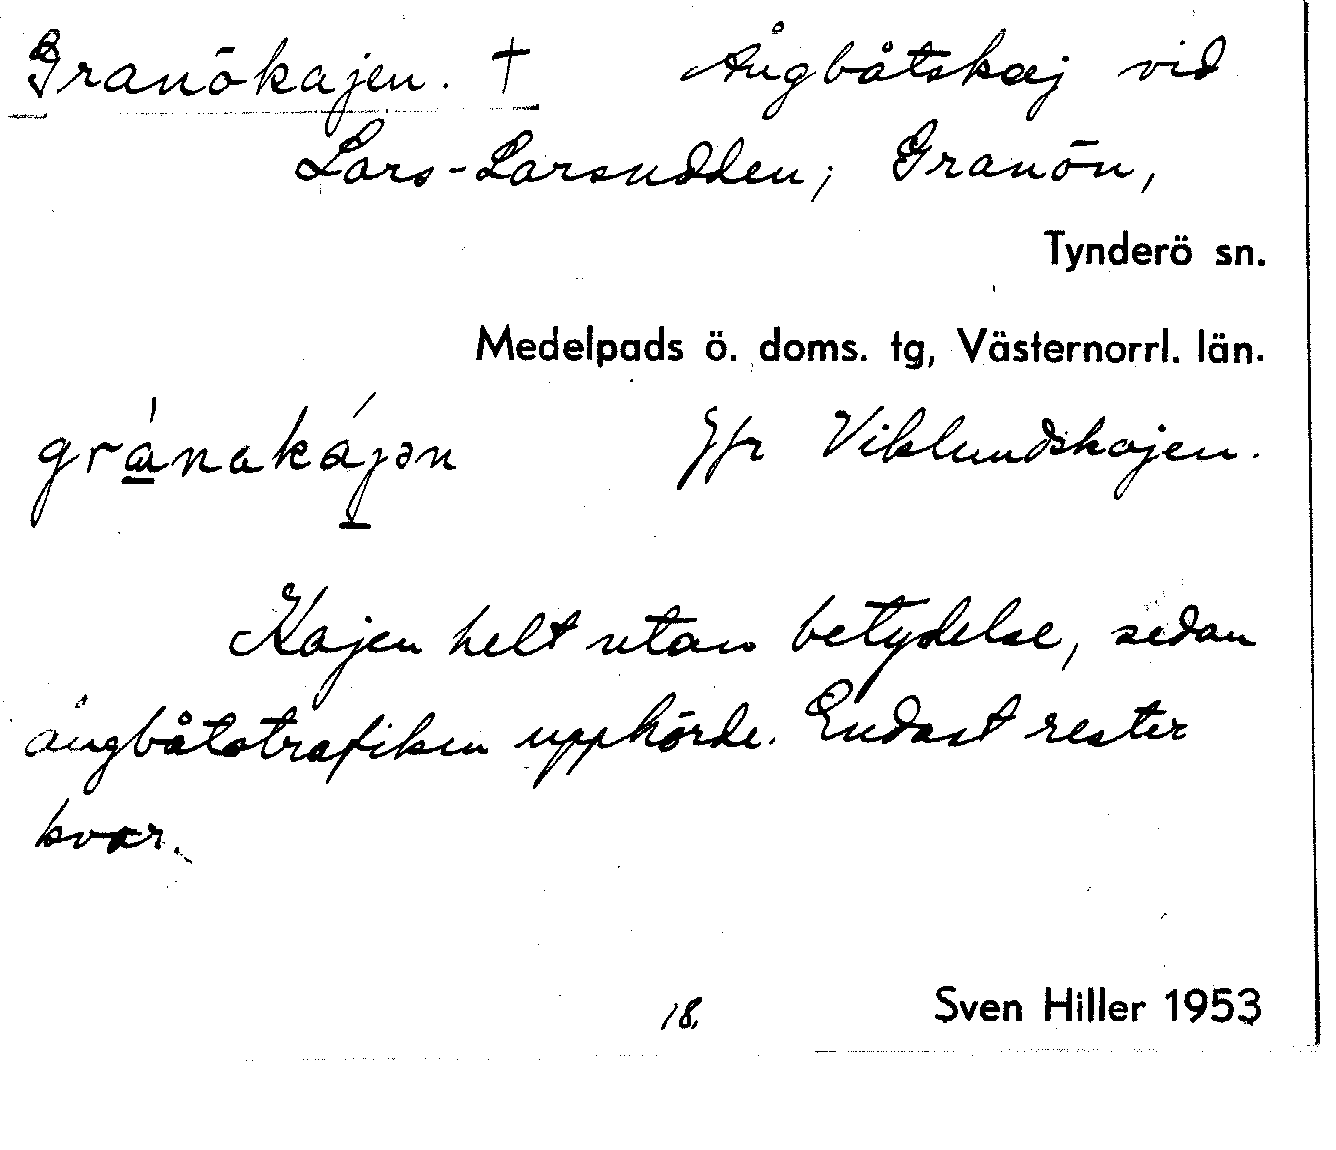 Granökajen. † Ångbåtskaj vid
Lars-Larsudden, Granön,
Tynderö sn.
Medelpads ö. doms. tg, Västernorrl. län.
grànakájən Jfr Viklundskajen.
Kajen helt utan betydelse, sedan
ångbåtstrafiken upphörde. Endast rester
kvar.
18. Sven Hiller 1953